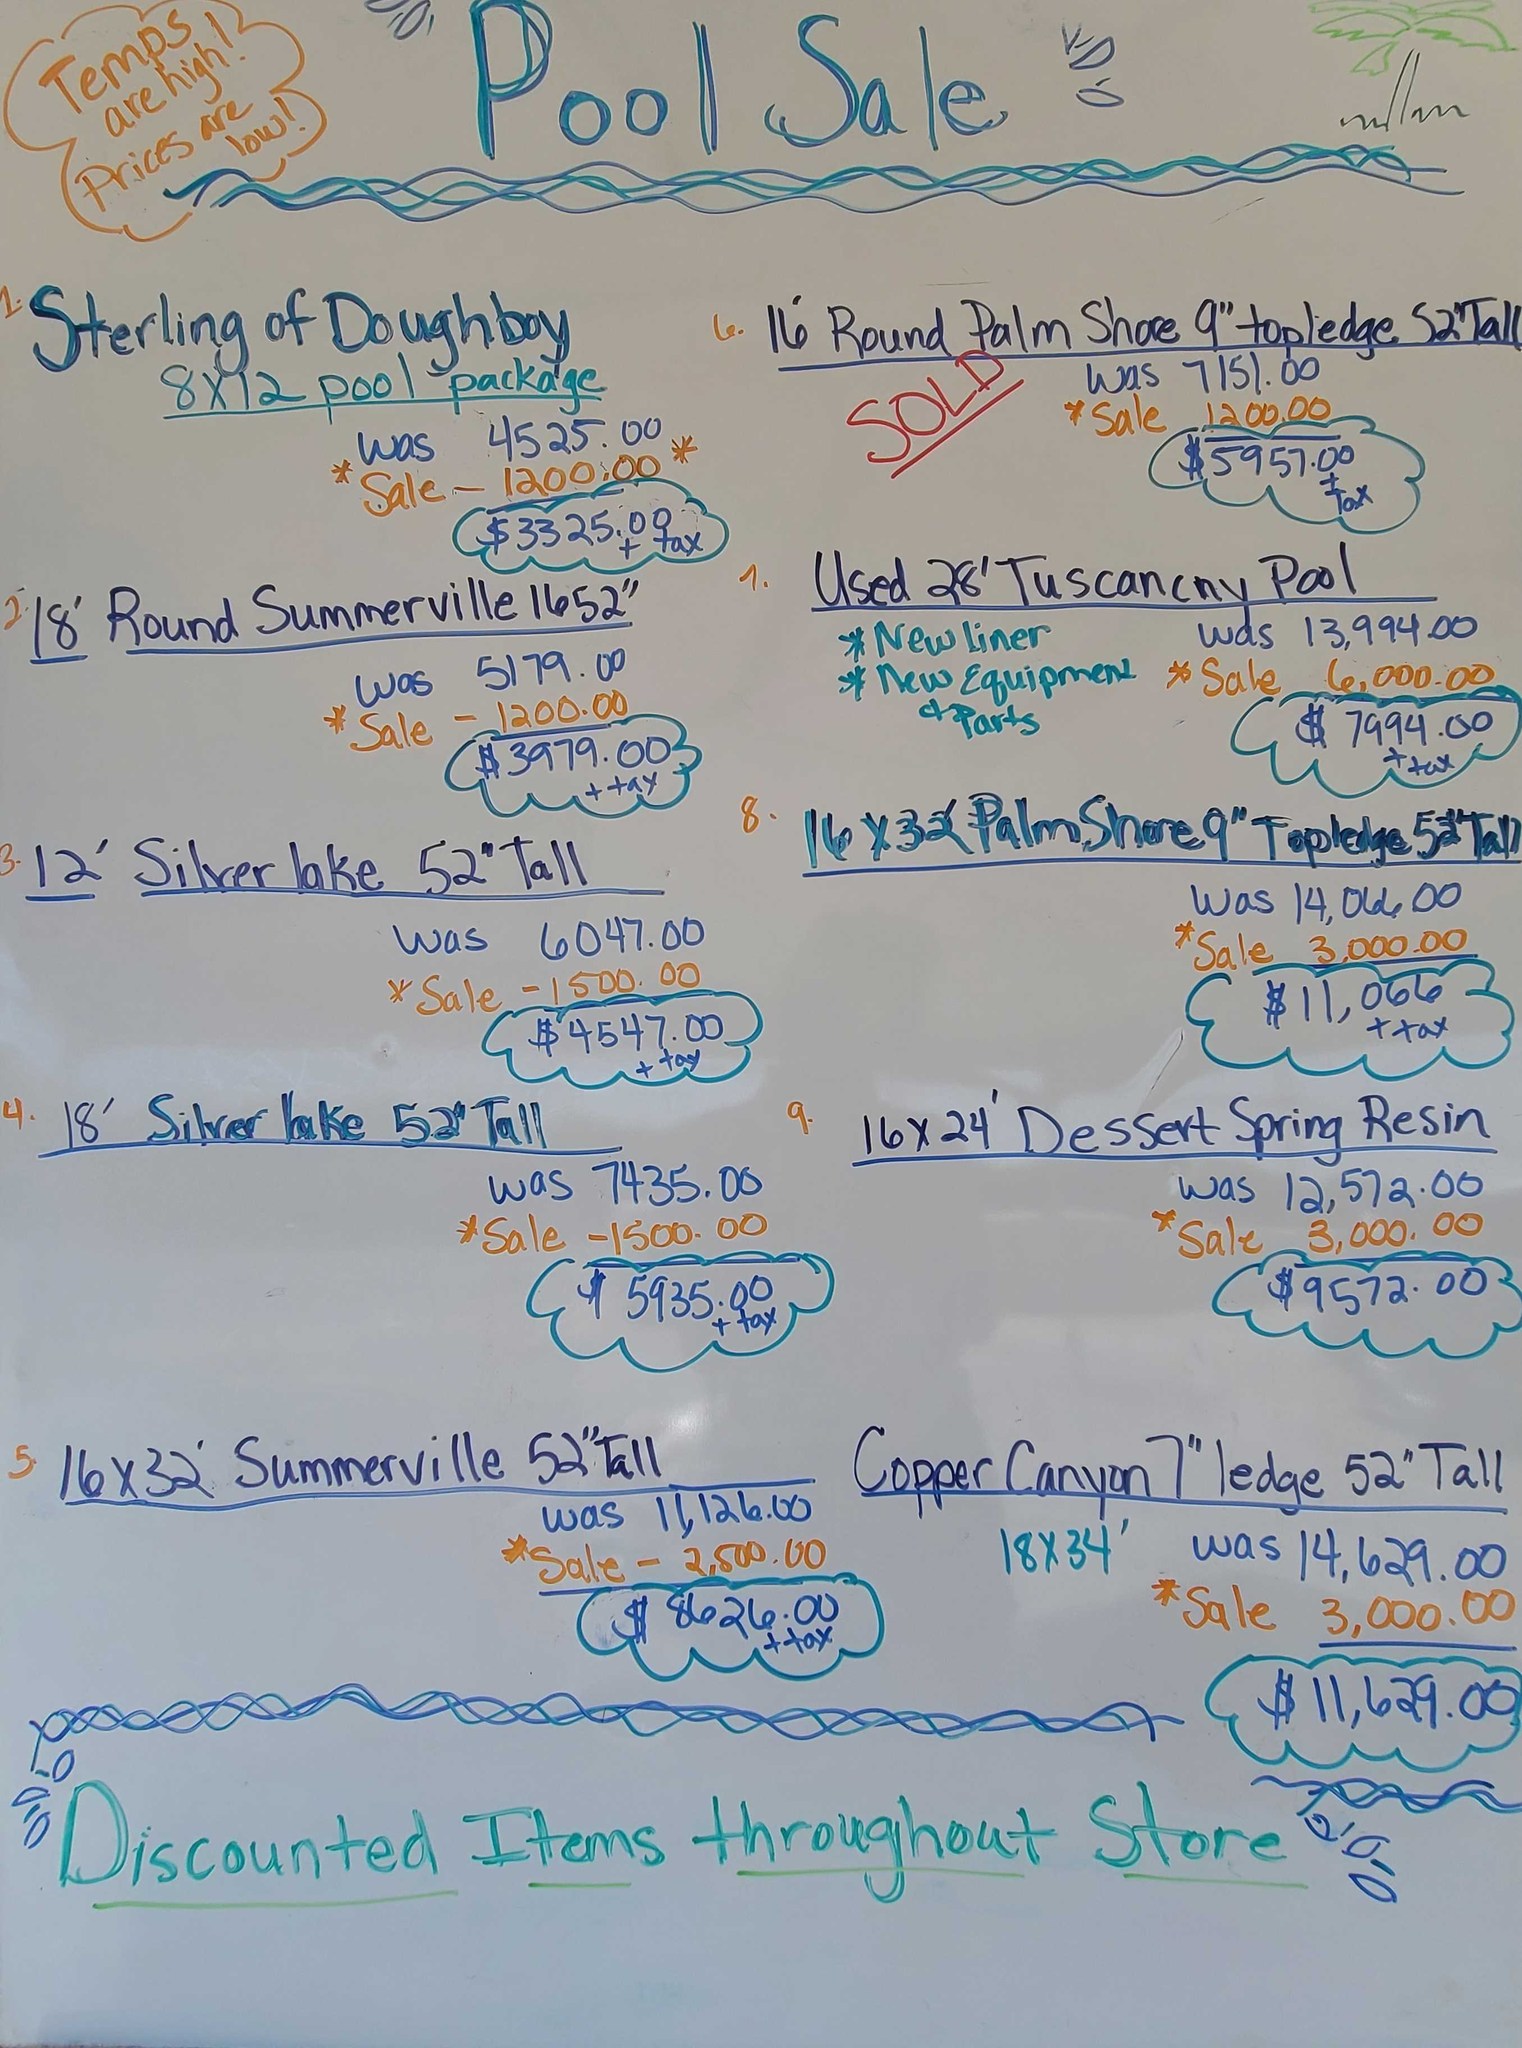 Temps
are high!
Prices are
low!
Pool Sale
1. Sterling of Doughboy
8x12 pool package
was 4525.00
*Sale - 1200.00 *
$3325.00
+ tax
2. 18' Round Summerville 1652"
was 5179.00
*Sale - 1200.00
$3979.00
+ tax
3. 12' Silver lake 52" Tall
was 6047.00
*Sale - 1500.00
$4547.00
+ tax
4. 18' Silver lake 52" Tall
was 7435.00
*Sale - 1500.00
$5935.00
+ tax
5. 16x32' Summerville 52" Tall
was 11,126.00
*Sale - 2,500.00
$8626.00
+ tax
6. 16' Round Palm Shore 9" topledge 52" Tall
SOLD
was 7151.00
*Sale 1200.00
$5957.00
+
tax
7. Used 28' Tuscancny Pool
* New liner
* New Equipment
+ Parts
was 13,994.00
*Sale 6,000.00
$7994.00
+ tax
8. 16x32' Palm Shore 9" Topledge 52" Tall
was 14,066.00
*Sale 3,000.00
$11,066
+ tax
9. 16x24' Dessert Spring Resin
was 12,572.00
*Sale 3,000.00
$9572.00
Copper Canyon 7" ledge 52" Tall
18x34' was 14,629.00
*Sale 3,000.00
$11,629.00
Discounted Items throughout Store